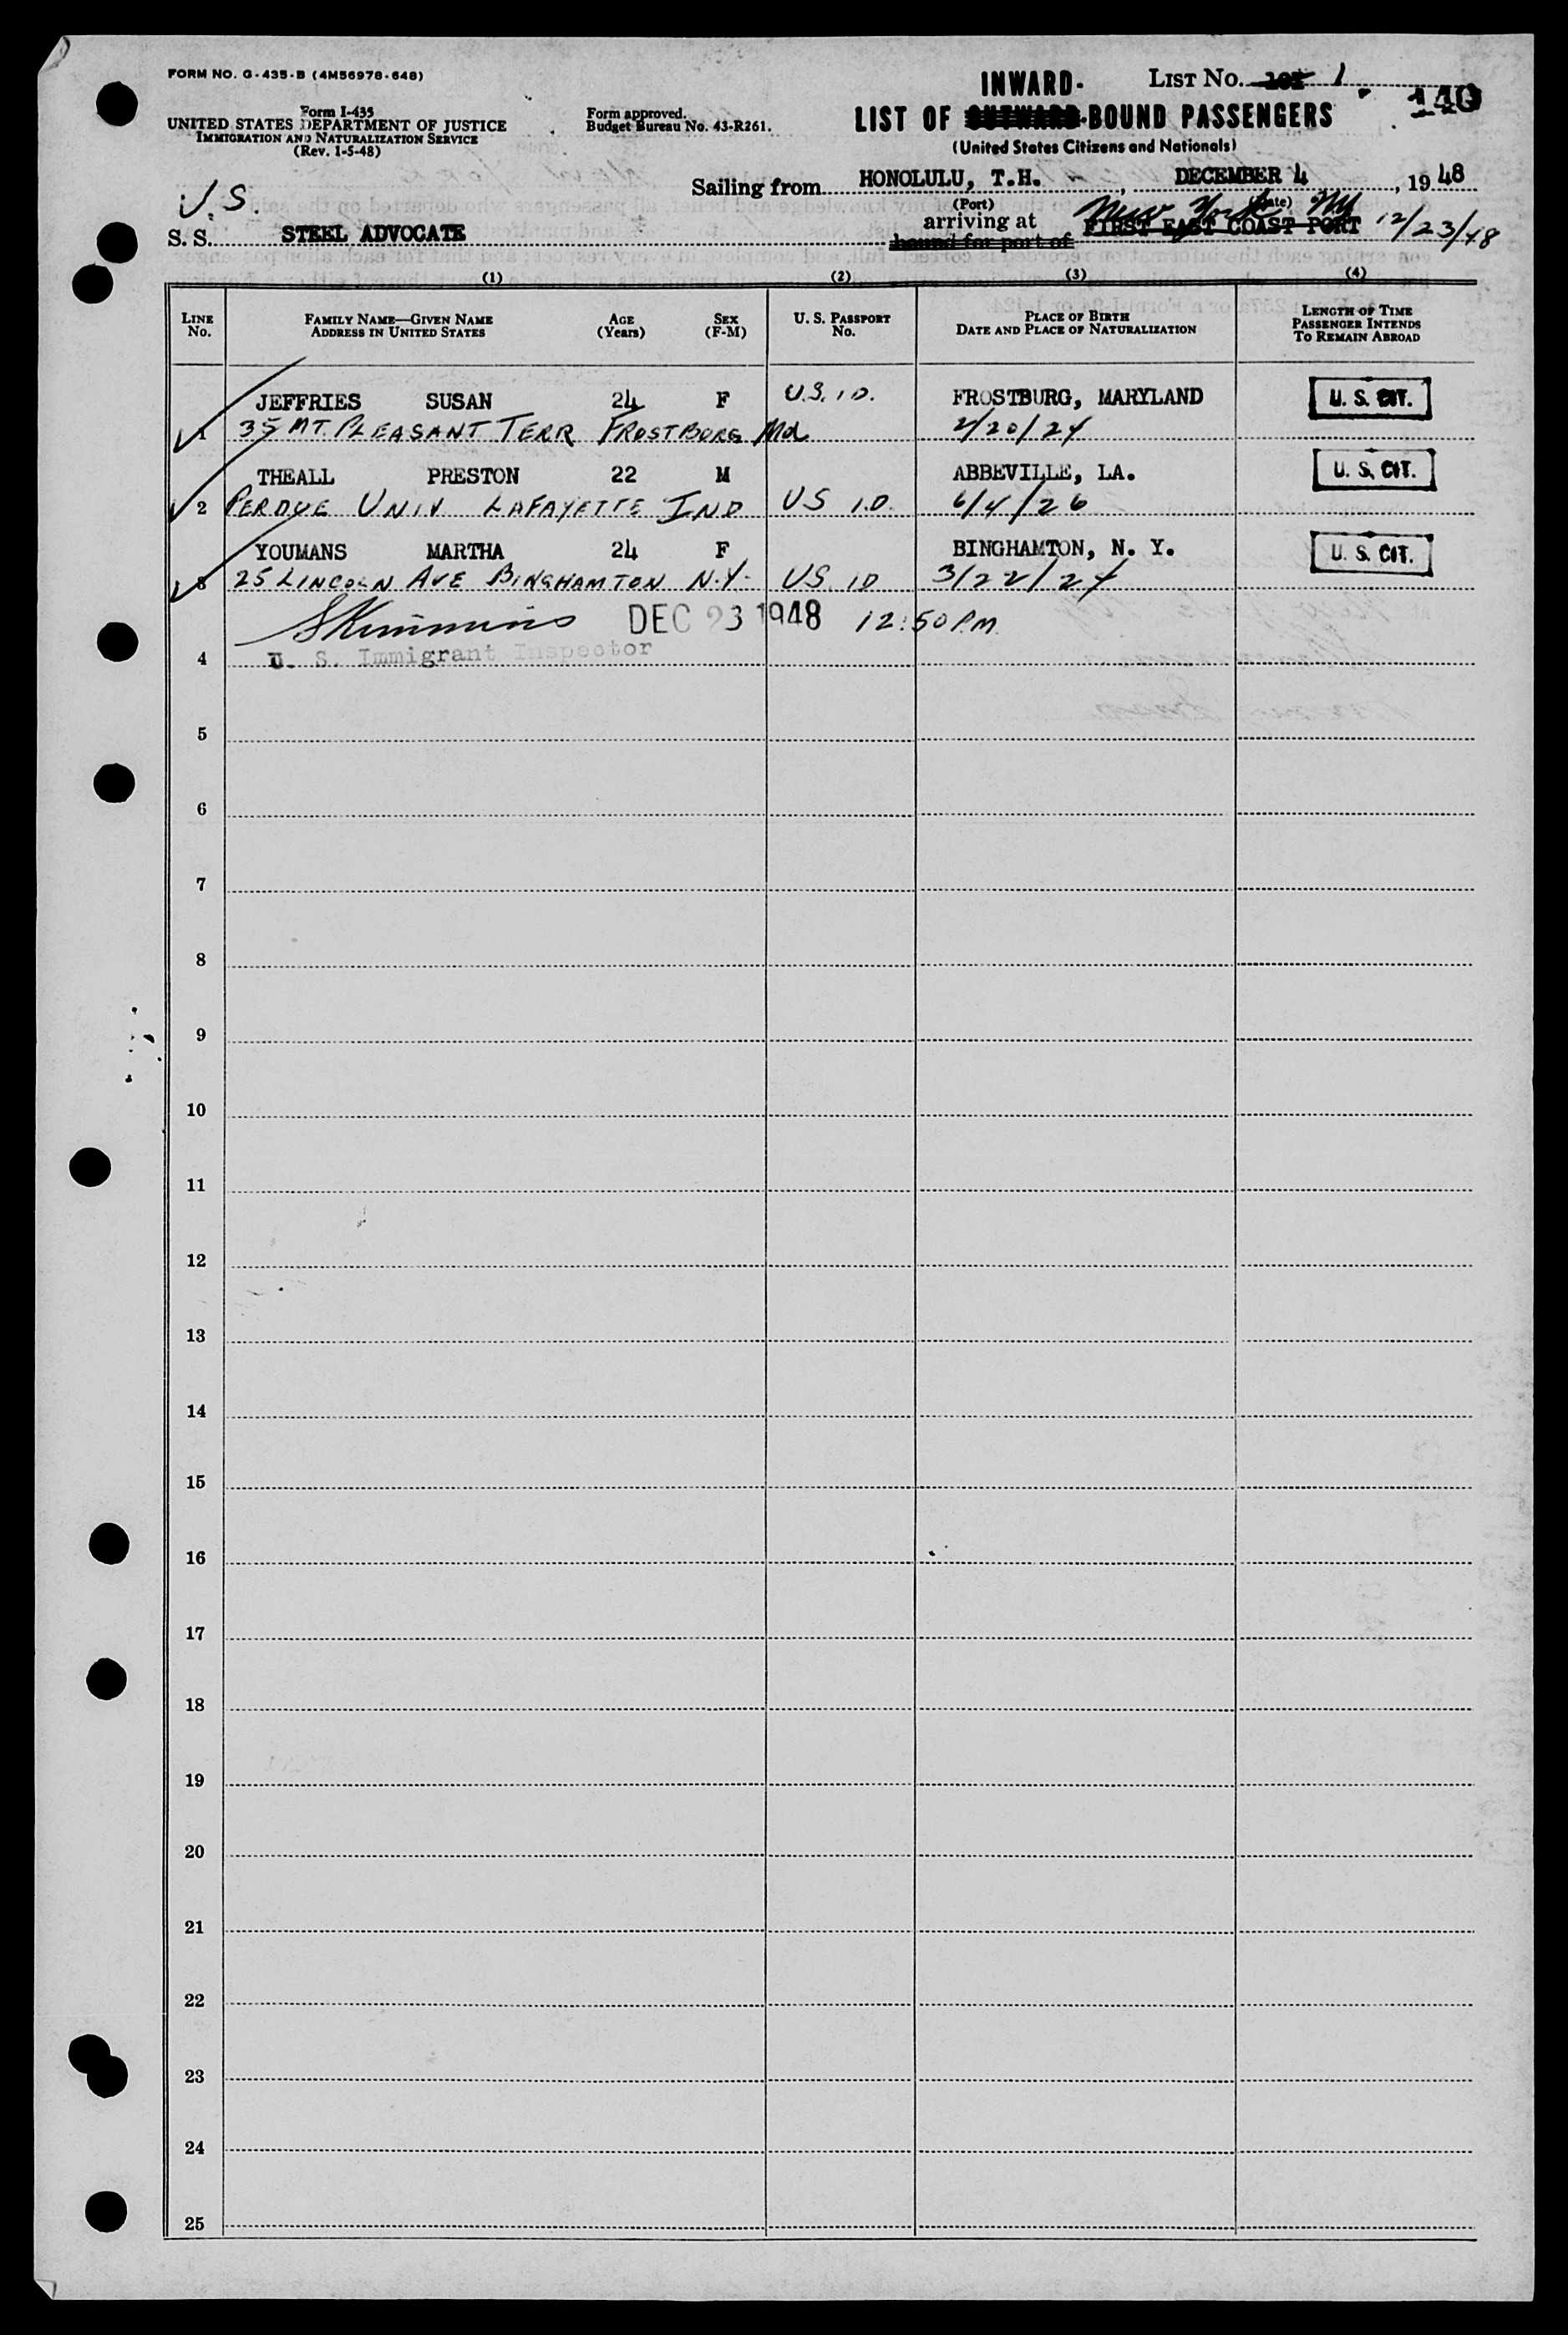 FORM NO. G-435-B (4M56978-648)
Form I-435
UNITED STATES DEPARTMENT OF JUSTICE
IMMIGRATION AND NATURALIZATION SERVICE
(Rev. 1-5-48)
Form approved.
Budget Bureau No. 43-R261.
INWARD-
LIST NO. 1
140
LIST OF OUTWARD-BOUND PASSENGERS
(United States Citizens and Nationals)
U.S.
Sailing from HONOLULU, T.H., DECEMBER 4, 1948
(Port) (Date)
S. S. STEEL ADVOCATE
arriving at New York NY 12/23/48
bound for port of FIRST EAST COAST PORT
(1) (2) (3) (4)
LINE No.
FAMILY NAME—GIVEN NAME
ADDRESS IN UNITED STATES
AGE (Years)
SEX (F-M)
U. S. PASSPORT No.
PLACE OF BIRTH
DATE AND PLACE OF NATURALIZATION
LENGTH OF TIME
PASSENGER INTENDS
TO REMAIN ABROAD
JEFFRIES SUSAN 24 F U.S. I.D. FROSTBURG, MARYLAND U. S. CIT.
1 35 MT. PLEASANT TERR FROSTBURG Md 2/20/24
THEALL PRESTON 22 M ABBEVILLE, LA. U. S. CIT.
2 PERDUE UNIV LAFAYETTE IND US I.D. 6/4/26
YOUMANS MARTHA 24 F BINGHAMTON, N. Y. U. S. CIT.
3 25 LINCOLN AVE BINGHAMTON N.Y. US ID 3/22/24
DEC 23 1948 12:50 P.M.
4 U. S. Immigrant Inspector
5
6
7
8
9
10
11
12
13
14
15
16
17
18
19
20
21
22
23
24
25